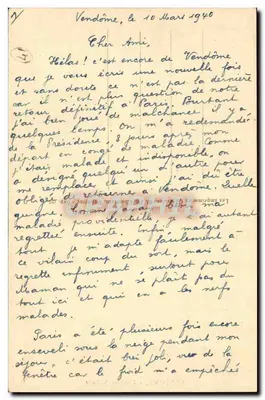 Vendôme, le 10 Mars 1940
Cher Ami,
Hélas ! c'est encore de Vendôme
que je vous écris une nouvelle fois
et sans doute ce n'est pas la dernière
car il n'est plus question de notre
retour définitif à Paris. Pourtant
j'ai bien joué de malchance : il y a
quelques temps on m'a redemandé
de la Présidence 8 jours après mon
départ en congé de maladie. Comme
j'étais malade et indisponible, on
a désigné quelqu'un d'autre pour
me remplacer et ainsi j'ai dû être
obligé retourner à Vendôme. Quelle
guigne, ma
maladie providentielle, je l'ai autant
regrettée ensuite. Enfin malgré
tout je m'adapte facilement à
ce vilain coup du sort, mais le
regrette infiniment, surtout pour
Maman qui ne se plait pas du
tout ici et qui en a les nerfs
malades.
Paris a été plusieurs fois encore
enseveli sous la neige pendant mon
séjour, c'était très joli, vu de la
fenêtre car le froid m'a empêchés